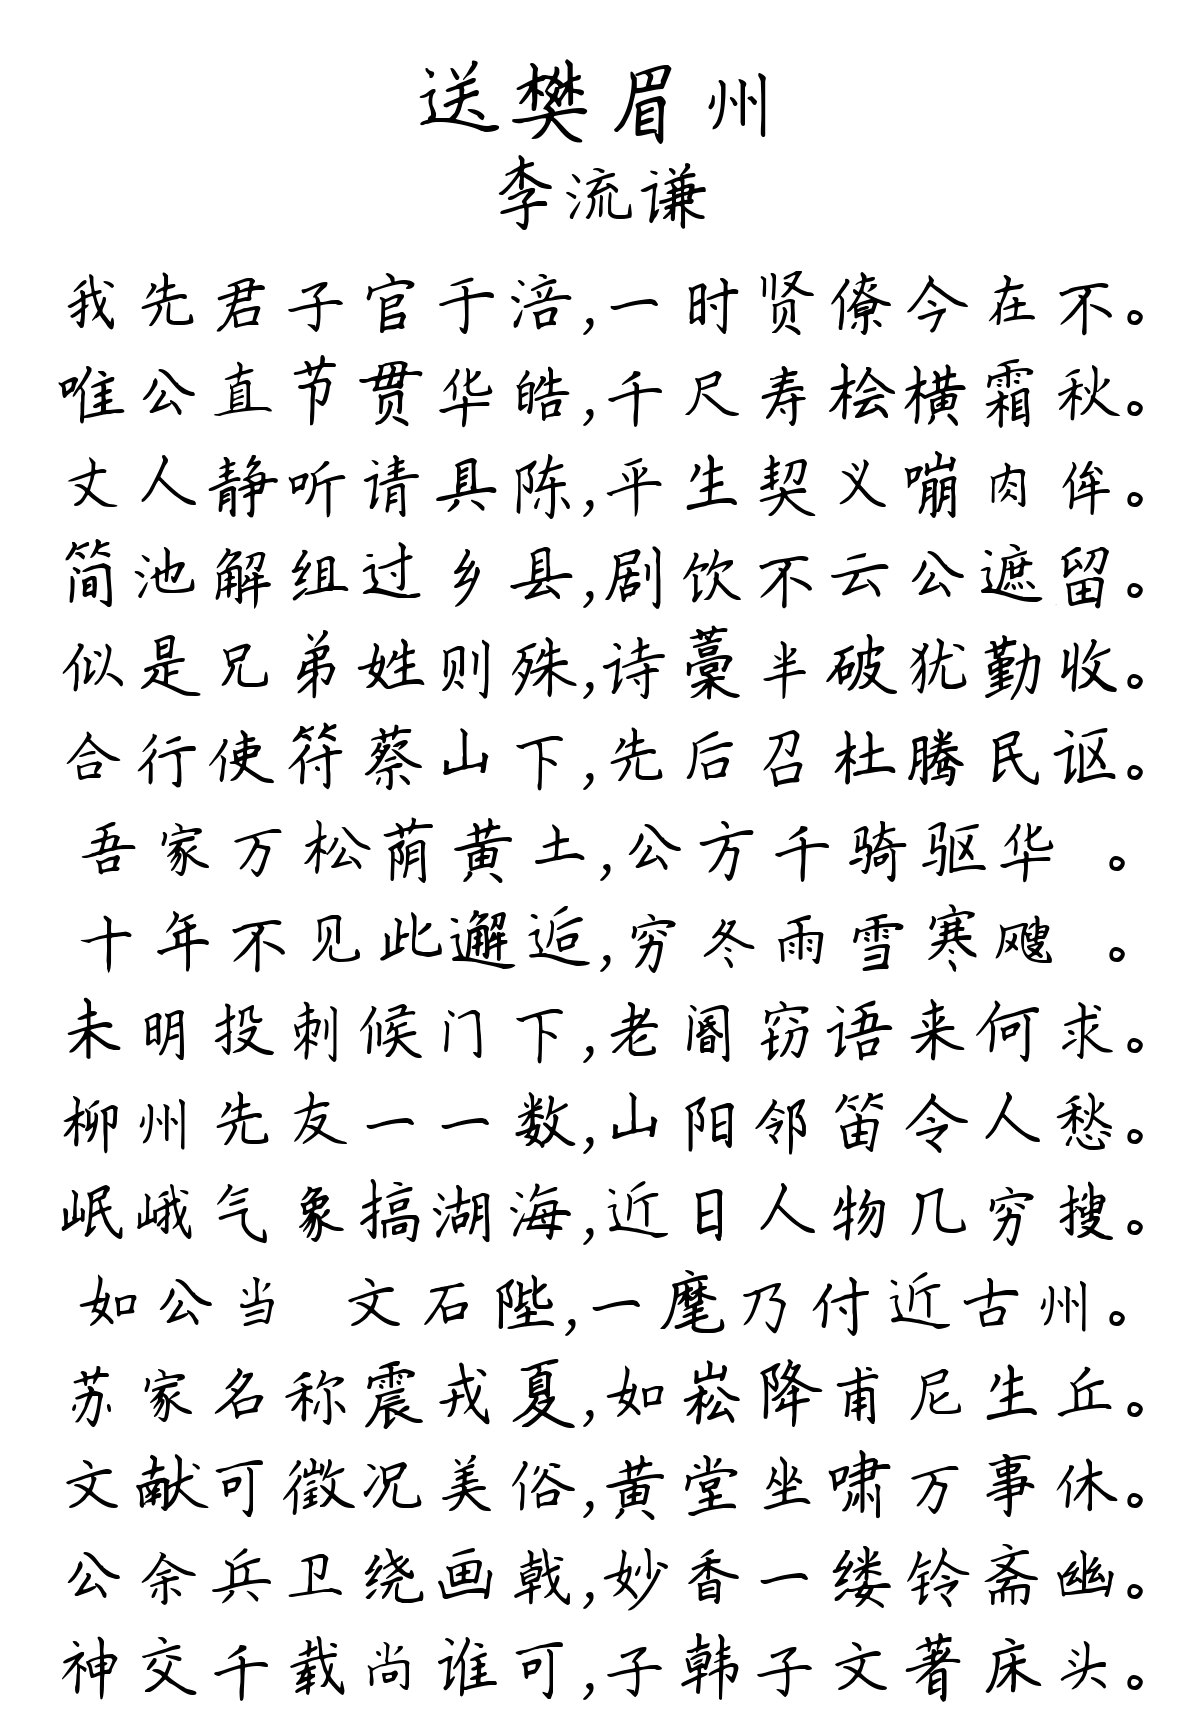 送樊眉州
李流谦
我先君子官于涪,一时贤僚今在不。
唯公直节贯华皓,千尺寿桧横霜秋。
丈人静听请具陈,平生契义嘣肉侔。
简池解组过乡县,剧饮不云公遮留。
似是兄弟姓则殊,诗藁半破犹勤收。
合行使符蔡山下,先后召杜腾民讴。
吾家万松荫黄土,公方千骑驱华 。
十年不见此邂逅,穷冬雨雪寒飕 。
未明投刺候门下,老阍窃语来何求。
柳州先友一一数,山阳邻笛令人愁。
岷峨气象搞湖海,近日人物几穷搜。
如公当 文石陛,一麾乃付近古州。
苏家名称震戎夏,如崧降甫尼生丘。
文献可徵况美俗,黄堂坐啸万事休。
公余兵卫绕画戟,妙香一缕铃斋幽。
神交千载尚谁可,子韩子文著床头。